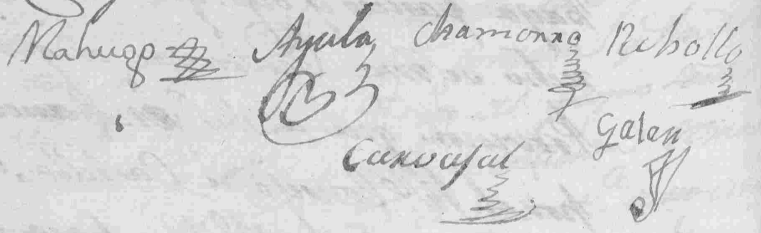 Mahugo Ayala Chamorro Rebollo
Carvajal Galan